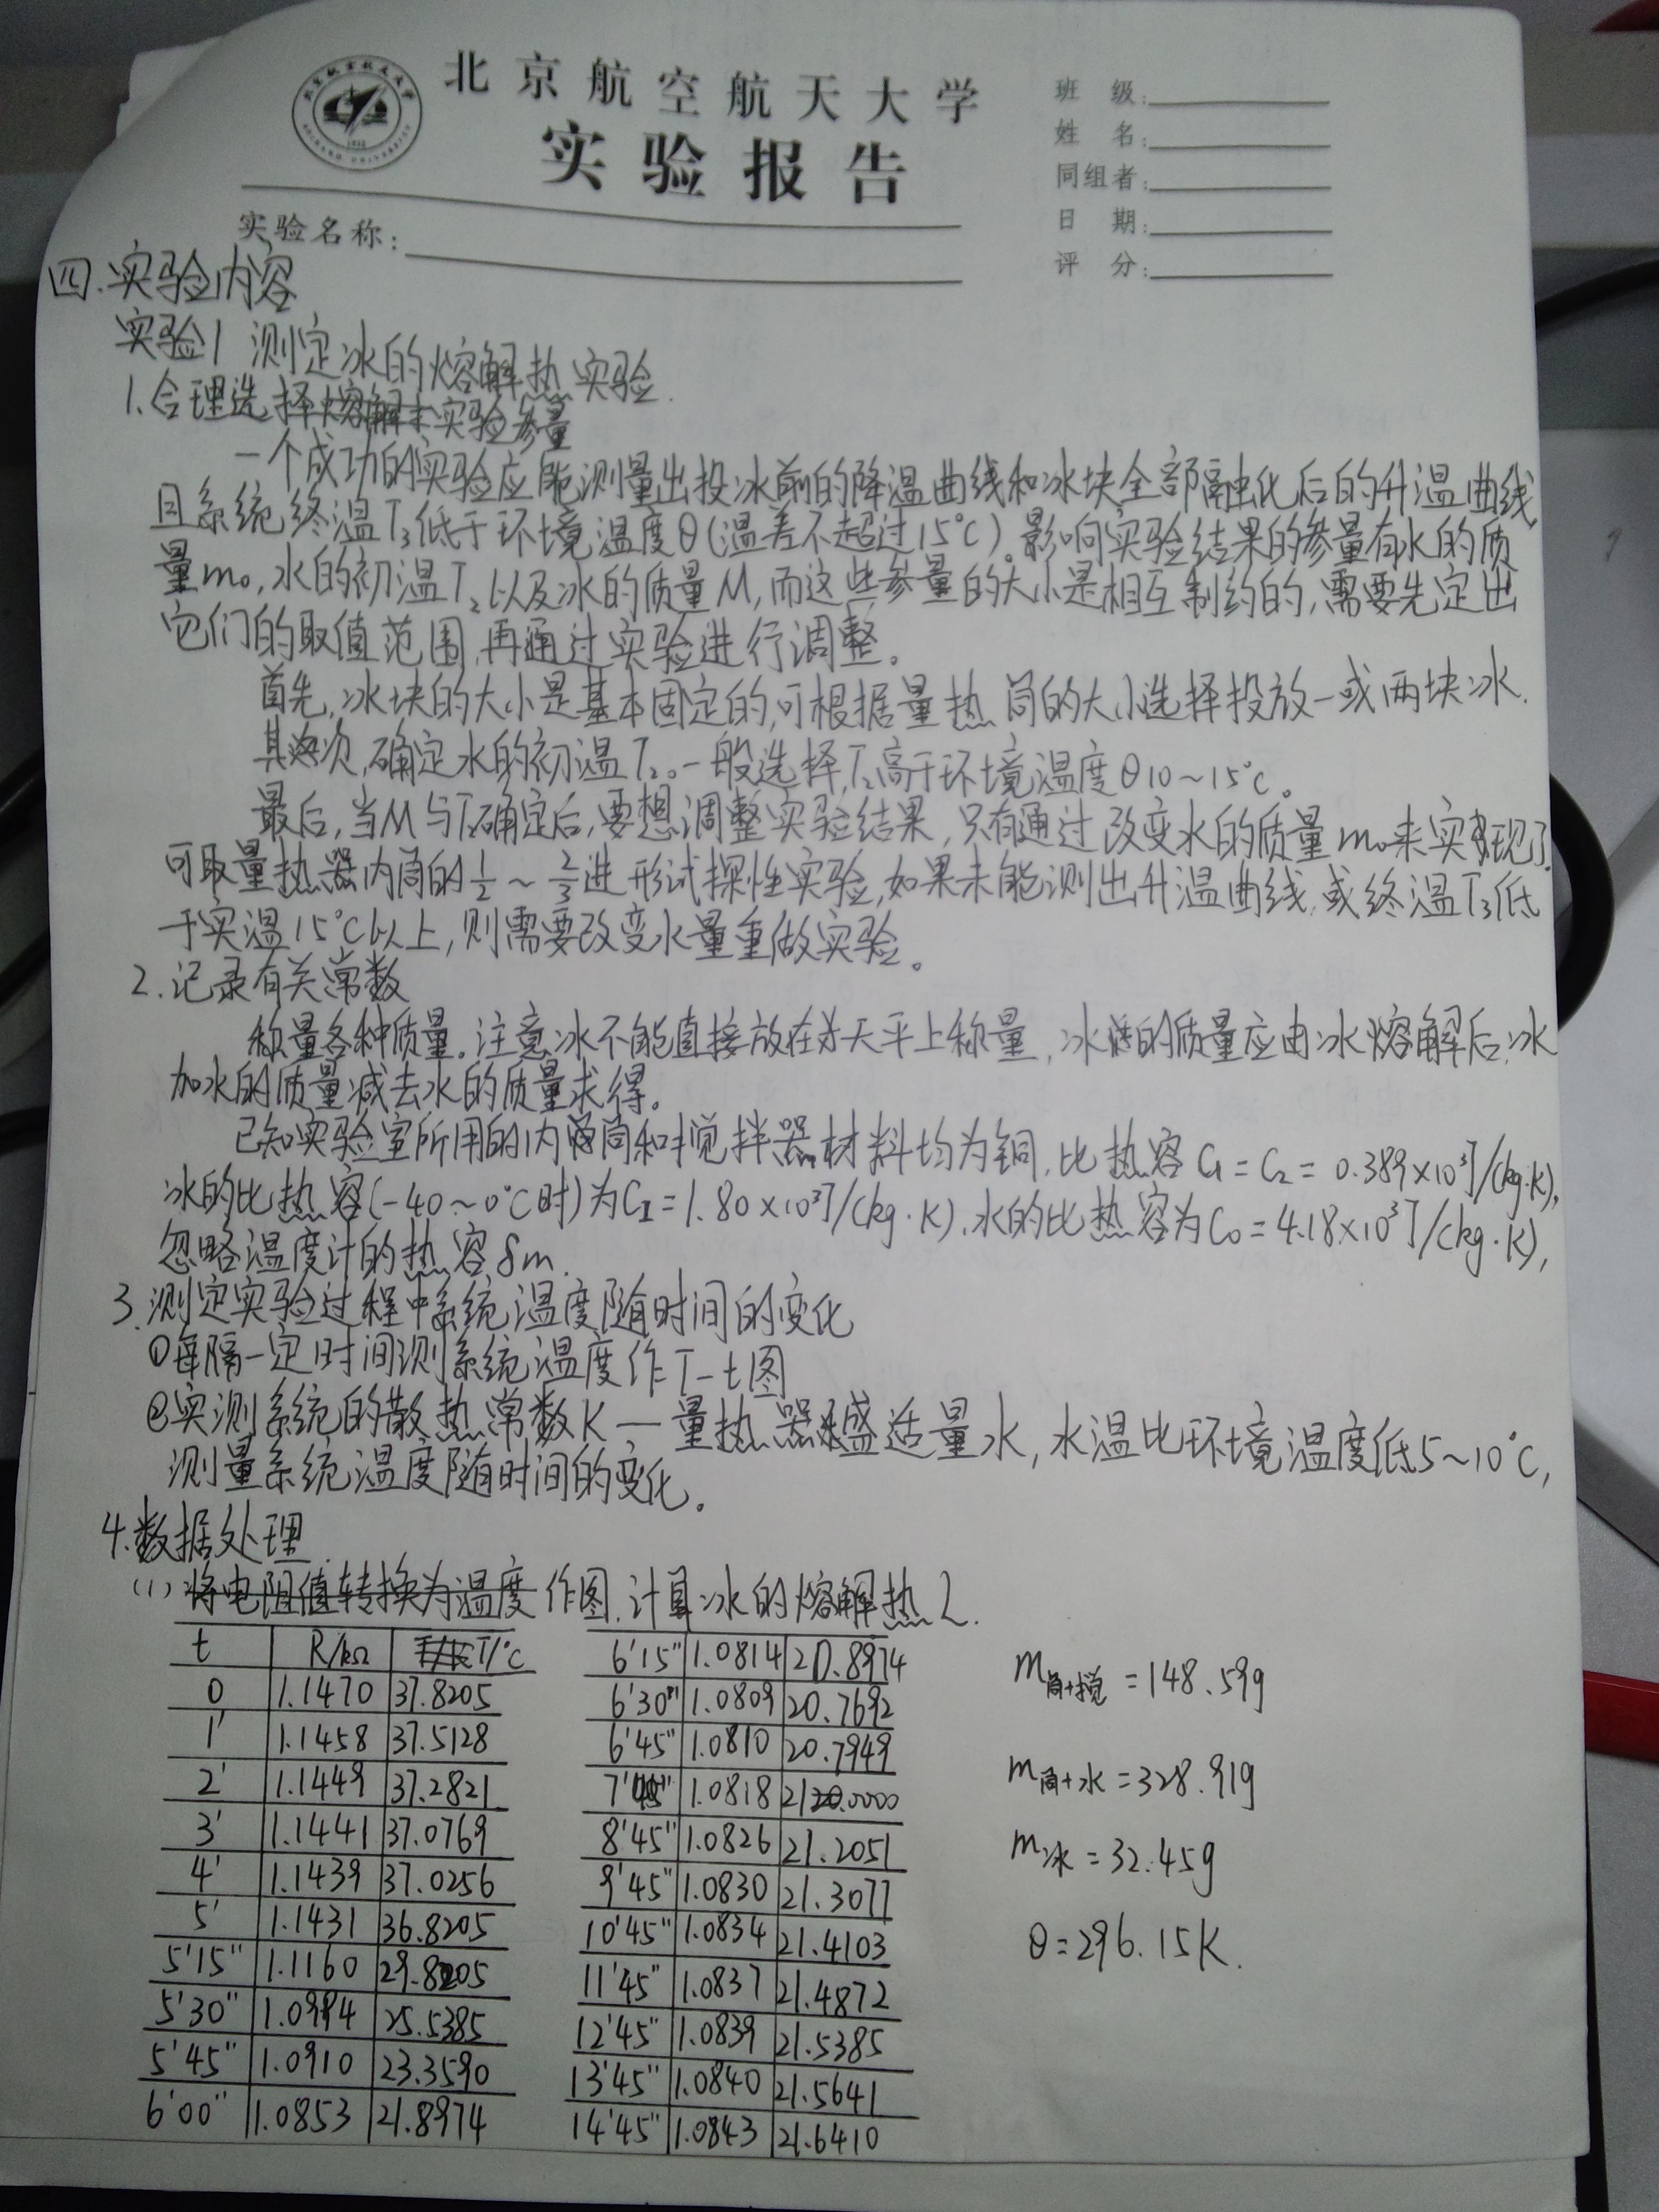 北京航空航天大学
实验报告
班 级:
姓 名:
同组者:
日 期:
评 分:
实验名称:
四.实验内容
实验1 测定冰的熔解热实验.
1.合理选择实验参量
一个成功的实验应能测量出投冰前的降温曲线和冰块全部融化后的升温曲线
且系统终温T₃低于环境温度θ(温差不超过15℃)。影响实验结果的参量有水的质
量m₀,水的初温T₂以及冰的质量M,而这些参量的大小是相互制约的,需要先定出
它们的取值范围,再通过实验进行调整。
首先,冰块的大小是基本固定的,可根据量热筒的大小选择投放一或两块冰.
其次,确定水的初温T₂。一般选择T₂高于环境温度θ10~15℃。
最后,当M与T₂确定后,要想调整实验结果,只有通过改变水的质量m₀来实现了.
可取量热器内筒的1/2~2/3进形试探性实验,如果未能测出升温曲线,或终温T₃低
于实温15℃以上,则需要改变水量重做实验。
2.记录有关常数
称量各种质量。注意冰不能直接放在天平上称量,冰的质量应由冰熔解后,冰
加水的质量减去水的质量求得。
已知实验室所用的内筒和搅拌器材料均为铜,比热容C₁=C₂=0.389×10³J/(kg·K),
冰的比热容(-40~0℃时)为C_I=1.80×10³J/(kg·K),水的比热容为C₀=4.18×10³J/(kg·K),
忽略温度计的热容δm.
3.测定实验过程中系统温度随时间的变化
①每隔一定时间测系统温度作T-t图
②实测系统的散热常数K—量热器盛适量水,水温比环境温度低5~10℃,
测量系统温度随时间的变化。
4.数据处理
(1)将电阻值转换为温度作图.计算冰的熔解热L.
t R/kΩ T/℃
0 1.1470 37.8205
1' 1.1458 37.5128
2' 1.1449 37.2821
3' 1.1441 37.0769
4' 1.1439 37.0256
5' 1.1431 36.8205
5'15" 1.1160 29.8205
5'30" 1.0994 25.5385
5'45" 1.0910 23.3590
6'00" 1.0853 21.8974
6'15" 1.0814 20.8974
6'30" 1.0809 20.7692
6'45" 1.0810 20.7949
7'45" 1.0818 21.0000
8'45" 1.0826 21.2051
9'45" 1.0830 21.3077
10'45" 1.0834 21.4103
11'45" 1.0837 21.4872
12'45" 1.0839 21.5385
13'45" 1.0840 21.5641
14'45" 1.0843 21.6410
m筒+搅=148.59g
m筒+水=328.91g
m冰=32.45g
θ=296.15K.